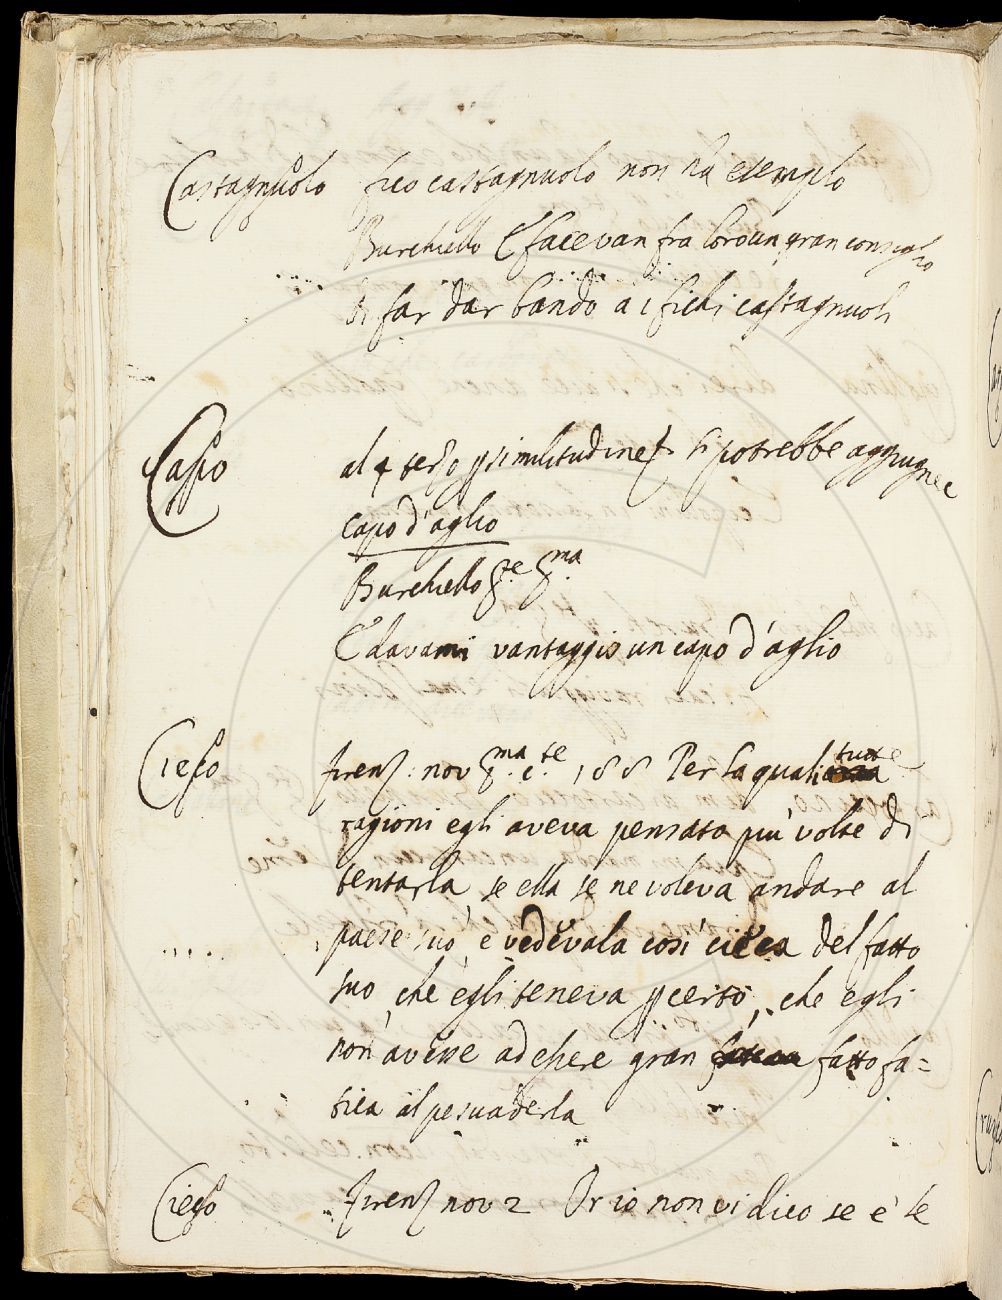 Castagnuolo fico castagnuolo non ha esemplo
Burchiello E facevan fra loro un gran consiglio
di far dar bando a i fichi castagnuoli
Capo al 4 terzo p similitudine si potrebbe aggiugnere
capo d'aglio
Burchiello
E davami vantaggio un capo d'aglio
Cieco firenz: nov 188 Per la qual tutte
ragioni egli aveva pensato più volte di
tentarla, se ella se ne voleva andare al
paese suo, e vedevala così cieca del fatto
suo, che egli teneva p certo, che egli
non avesse ad essere gran fatto fa=
tica al persuaderla
Cieco firenz nov 2 Or io non vi dico se e' le